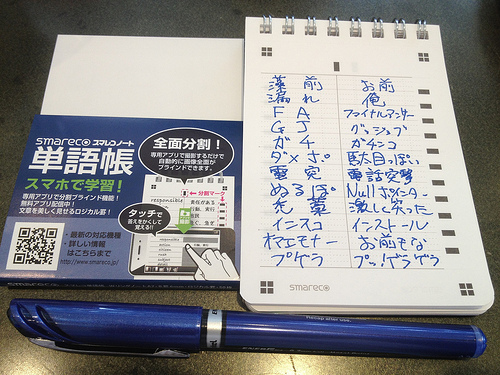 smareco スマレコノート
単語帳
スマホで学習！
専用アプリで全分割ブラインド機能！
無料アプリ配信中！
文章を楽しく見せるロジカル罫！
・最新の対応機種
・詳しい情報
はこちらまで
http://www.smareco.jp/
全面分割！
専用アプリで撮影するだけで
自動的に画像全面が
ブラインドできます。
分割マーク
responsible
責任がある
タッチで
答えをかくして
覚える!!
藻前 お前
漏れ 俺
FA ファイナルアンサー
GJ グッジョブ
ガチ ガチンコ
ダメぽ 駄目っぽい
電突 電話突撃
ぬるぽ Nullポインター
禿藁 激しく笑った
インスコ インストール
オマエモナー お前もな
プゲラ プッゲラゲラ
smareco
Recap after use.